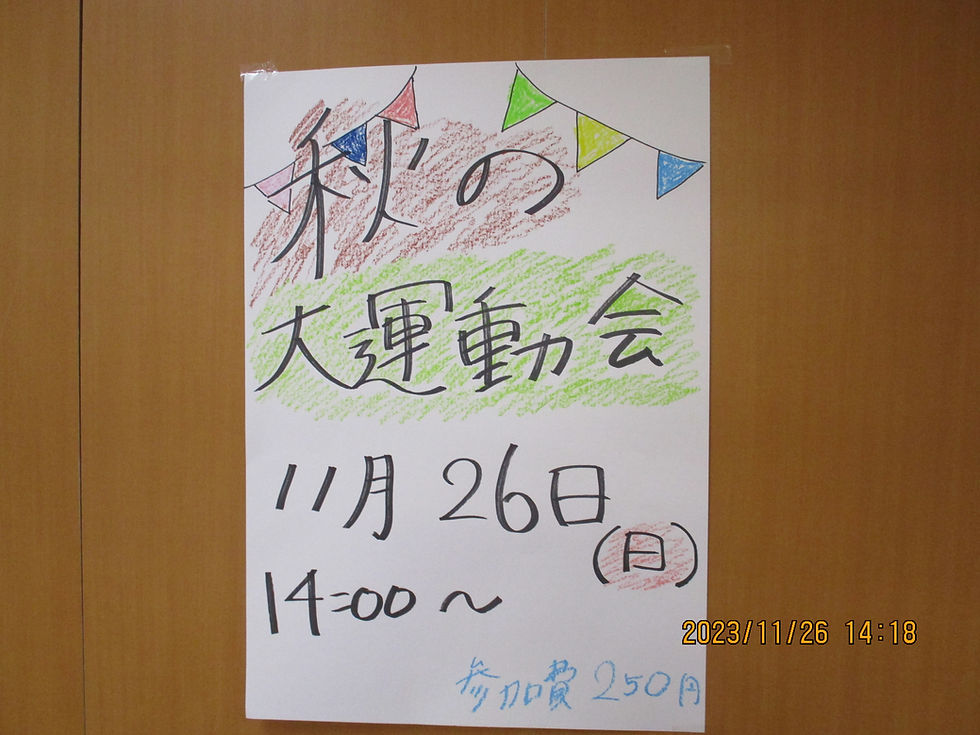 秋の
大運動会
11月26日
(日)
14:00〜
参加費 250円
2023/11/26 14:18